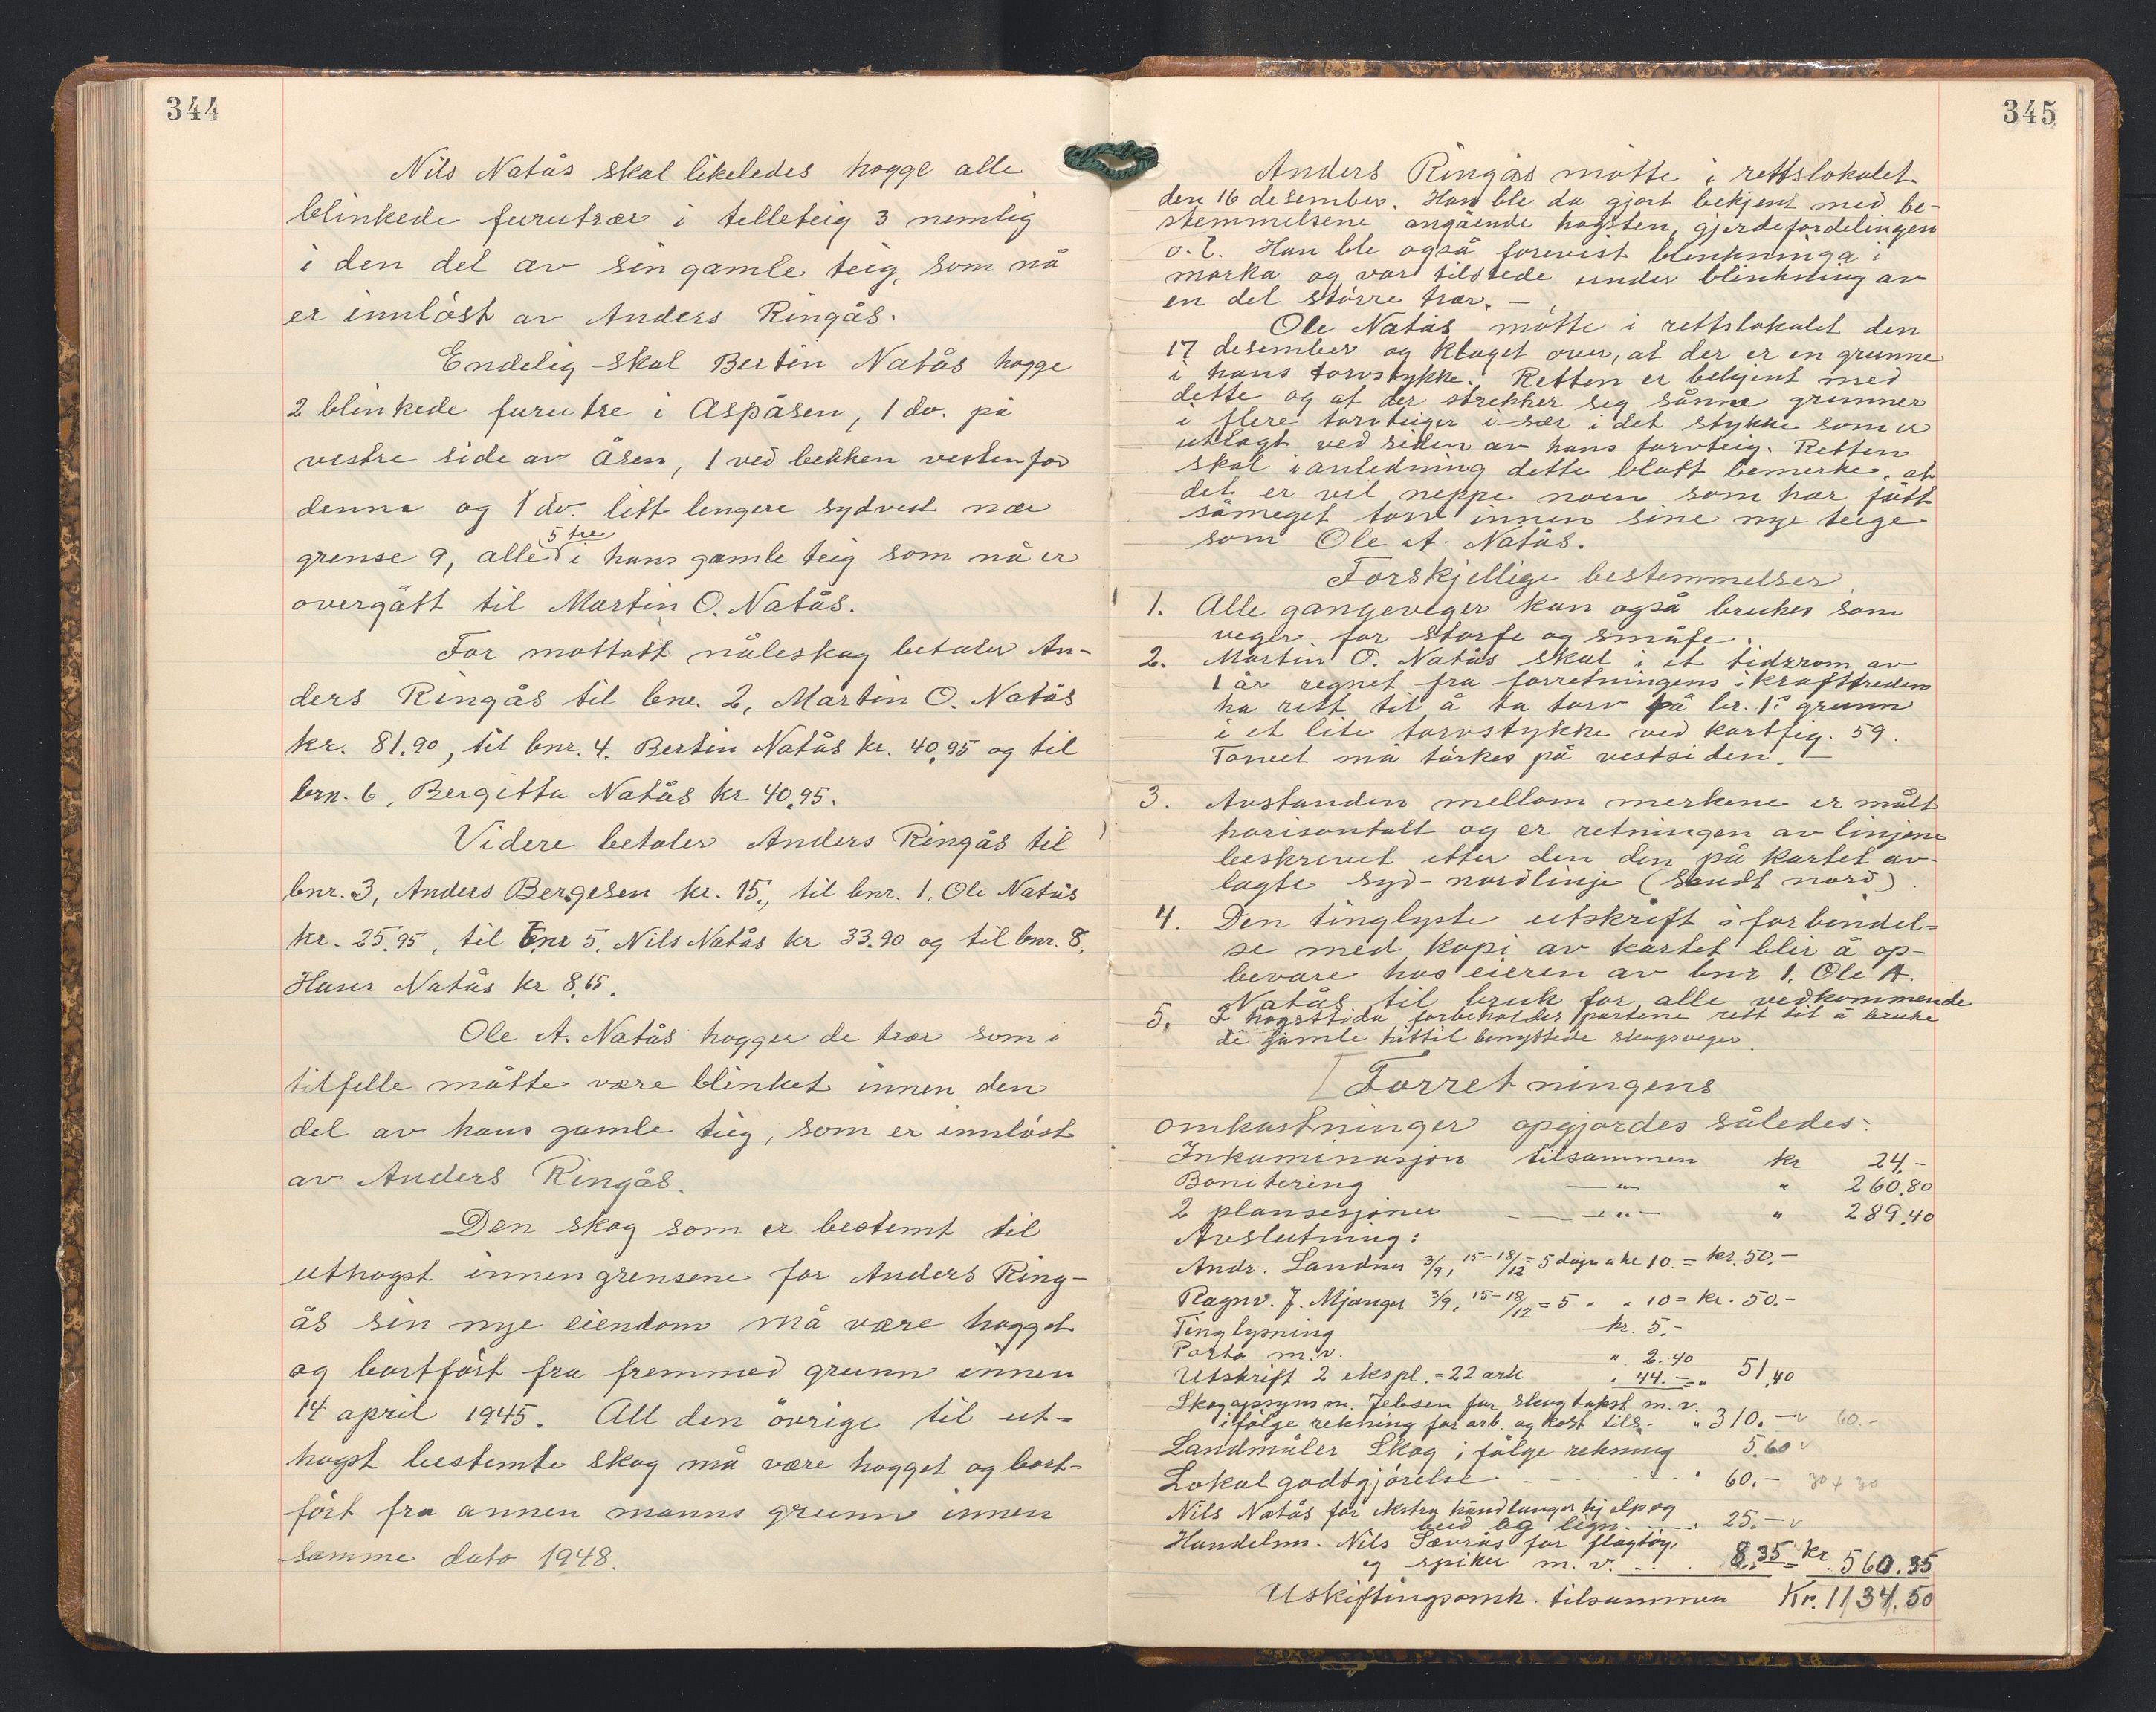 344
Nils Natås skal likeledes hogge alle
blinkede furutrær i telleteig 3 nemlig
i den del av sin gamle teig, som nå
er innløst av Anders Ringås.
Endelig skal Bertin Natås hogge
2 blinkede furutre i Aspåsen, 1 do. på
vestre side av Åsen, 1 ved bekken vestenfor
denne og 1 do. litt lengere sydvest nær
5 tre
grense 9, alle i hans gamle teig som nå er
overgått til Martin O. Natås.
For mottatt nåleskog betaler An-
ders Ringås til bnr. 2, Martin O. Natås
kr. 81.90, til bnr. 4. Bertin Natås kr. 40,95 og til
brn. 6, Bergitta Natås kr 40,95.
Videre betaler Anders Ringås til
bnr. 3, Anders Bergesen kr. 15., til bnr. 1, Ole Natås
kr. 25.95, til bnr 5, Nils Natås kr 33.90 og til bnr. 8,
Hans Natås kr 8,65.
Ole A. Natås hogger de trær som i
tilfelle måtte være blinket innen den
del av hans gamle teig, som er innløst
av Anders Ringås.
Den skog som er bestemt til
uthogst innen grensene for Anders Ring-
ås sin nye eiendom må være hogget
og bortført fra fremmed grunn innen
14 april 1945. All den øvrige til ut-
hogst bestemte skog må være hogget og bort-
ført fra annen manns grunn innen
samme dato 1948.
345
Anders Ringås møtte i rettslokalet
den 16 desember. Han ble da gjort bekjent med be-
stemmelsene angående hogsten, gjerdefordelingen
o.l. Han ble også forevist blinkninga i
marka og var tilstede under blinkning av
en del større trær. –
Ole Natås møtte i rettslokalet den
17 desember og klaget over, at der er en grunne
i hans torvstykke. Retten er bekjent med
dette og at der strekker seg sånne grunner
i flere torvteiger i-sær i det stykke som er
utlagt ved siden av hans torvteig. Retten
skal i anledning dette blott bemerke, at
det er vel neppe noen som har fått
såmeget torv innen sine nye teige
som Ole A. Natås.
Forskjellige bestemmelser.
1. Alle gangeveger kan også brukes som
veger for storfe og småfe.
2. Martin O. Natås skal i et tidsrom av
1 år regnet fra forretningens ikrafttreden
ha rett til å ta torv på br. 1s grunn
i et lite torvstykke ved kartfig. 59.
Torvet må tørkes på vestsiden. –
3. Avstanden mellom merkene er målt
horisontalt og er retningen av linjene
beskrevet etter den den på kartet av-
lagte syd-nordlinje (sandt nord).
4. Den tinglyste utskrift i forbindel-
se med kopi av kartet blir å op-
bevare hos eieren av bnr 1. Ole A.
Natås til bruk for alle vedkommende
5. I hogsttida forbeholdes partene rett til å bruke
de gamle hittil benyttede skogsveger.
Forretningens
omkostninger opgjordes således:
Inkaminasjon tilsammen kr 24,–
Bonitering –"– " 260,80
2 plansesjoner –"– " 289,40
Avslutning:
Andr. Landnes 3/9, 15–18/12 = 5 døgn a kr 10. = kr. 50.–
Ragnv. J. Mjanger 3/9, 15–18/12 = 5 " " 10 = kr. 50.–
Tinglysning kr. 5.–
Porto m.v. " 2.40
Utskrift 2 ekspl. = 22 ark " 44.– = " 51,40
Skogopsynsm. Jebsen for skogtakst m.v.
ifølge rekning for arb. og kost tils. " 310.– v 60.–
Landmåler Skog i følge rekning 5.60 v
Lokalgodtgjørelse " 60.– 30 + 30
Nils Natås for ekstra håndlangerhjelp og
bud og lign. " 25.– v
Handelsm. Nils Sævrås for flagtøy,
og spiker m.v. 8.35 = kr. 560.35
Uskiftingsomk. tilsammen Kr. 1134.50